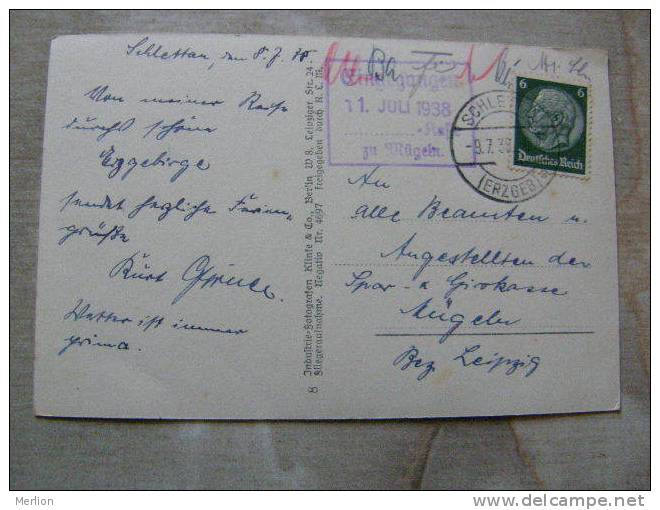 Schlettau, den 8.7.38
Von meiner Reise
durchs schöne
Erzgebirge
sendet herzliche Ferien-
grüße
Kurt
Wetter ist immer
prima.
8 Industrie-Fotografen Klinke & Co., Berlin W 8, Leipziger Str. 24
Fliegeraufnahme. Negativ Nr. 4697 freigegeben durch R.L.M.
Eingegangen
11. JULI 1938
zu Mügeln.
6 6
Deutsches Reich
SCHLETTAU
-9.7.38
(ERZGEB)
An
alle Beamten u.
Angestellten der
Spar- u Girokasse
Mügeln
Bez Leipzig
Merlion
www.delcampe.net